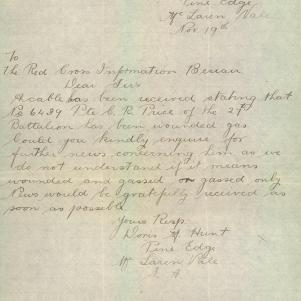 Pine Edge
Mc Laren Vale
Nov 19th
To
The Red Cross Information Bureau
Dear Sirs
A cable has been received stating that
No 6439 Pte C. R. Price of the 27th
Battalion has been wounded gas
Could you kindly enquire for
further news concerning him as we
do not understand if it means
wounded and gassed or gassed only
News would be gratefully received as
soon as possible
Yours Resp
Doris M Hunt
Pine Edge
Mc Laren Vale
S. A.